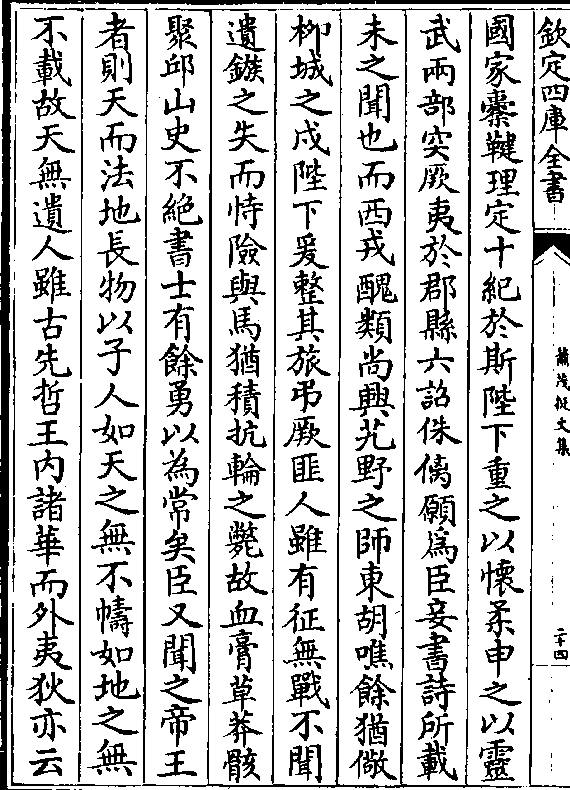 欽定四庫全書
蕭茂挺文集
二十四
國家櫜鞬理定十紀於斯陛下重之以懷柔申之以靈
武兩部突厥夷於郡縣六詔侏㒧願為臣妾書詩所載
未之聞也而西戎醜類尚興艽野之師東胡噍餘猶儆
柳城之戍陛下爰整其旅弔厥匪人雖有征無戰不聞
遺鏃之失而恃險與馬猶積抗輪之斃故血膏草莽骸
聚邱山史不絶書士有餘勇以為常矣臣又聞之帝王
者則天而法地長物以子人如天之無不幬如地之無
不載故天無遺人雖古先哲王内諸華而外夷狄亦云